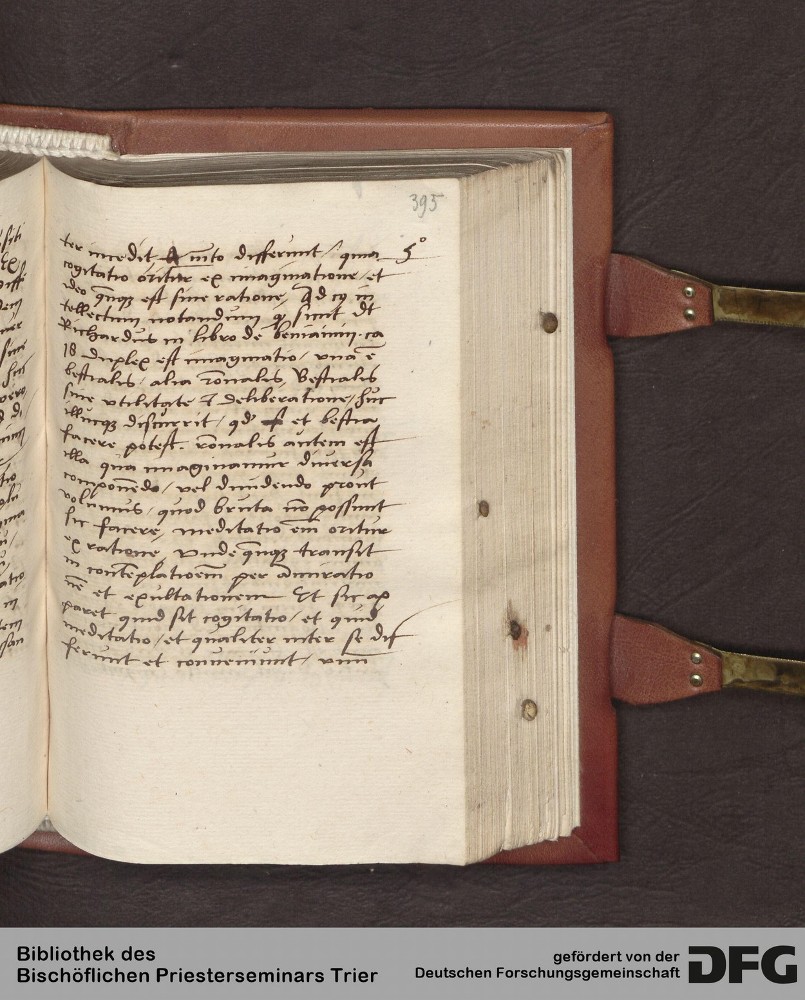 395
ter incedit uito differunt / quia 5°
cogitatio oritur ex imaginatione / et
ideo qn̄qz est sine ratione, Ad cuius in
tellectum notandum qꝫ sicut dt
Richardus in libro de beniamin · ca
18 duplex est imaginatio / vna ē
bestialis / alia rōnalis, Bestialis
sine vtilitate & deliberatione / huc
illucqz discurrit / qd et bestia
facere potest. rōnalis autem est
illa qua imaginamur diuersa
componēdo / vel diuidendo prout
volumus / quod bruta nō possunt
sic facere, meditatio em̄ oritur
ex ratione, vnde qn̄qz transit
in contēplatioēm per admiratio
nē et exultationem Et sic ap
paret quid sit cogitatio / et quid
meditatio / et qualiter inter se dif
ferunt et conueniunt /
Bibliothek des
Bischöflichen Priesterseminars Trier
gefördert von der
Deutschen Forschungsgemeinschaft
DFG